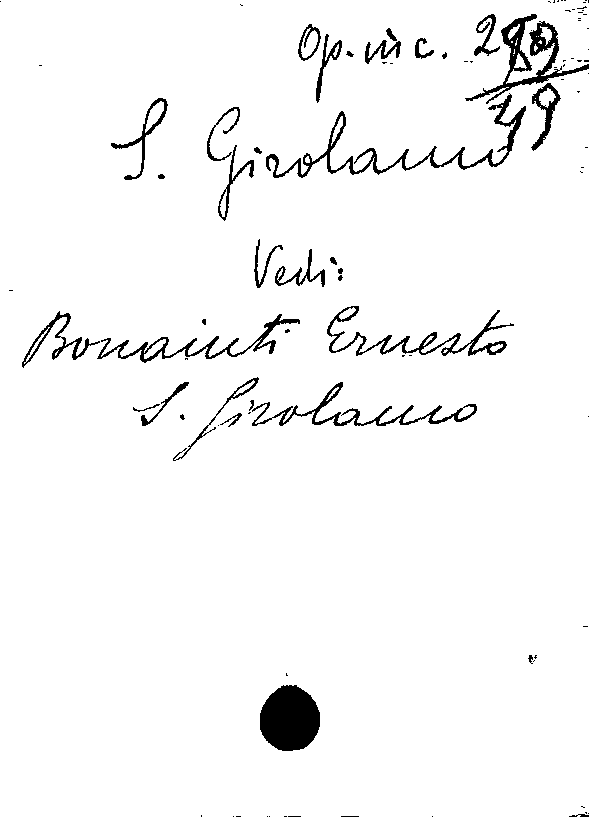 Op. inc.
49
S. Girolamo
Vedi:
Bonaiuti Ernesto
S. Girolamo